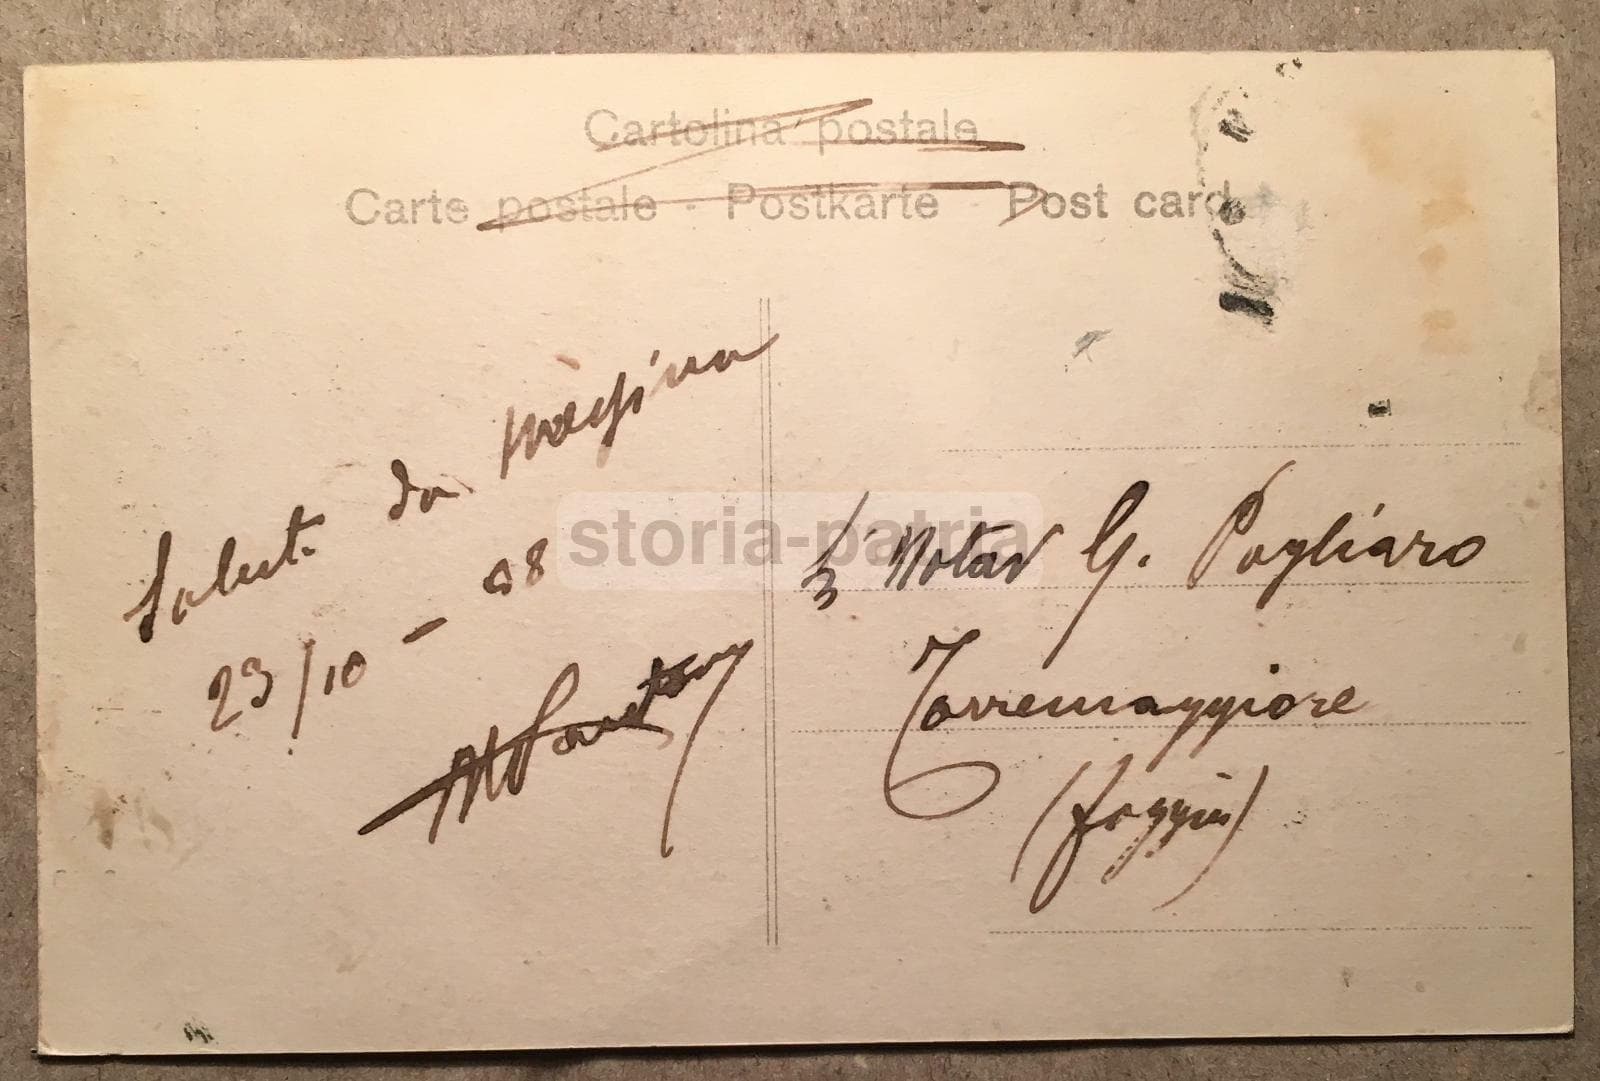 Cartolina postale
Carte postale - Postkarte - Post card
Saluti da
23/10 - 08
storia-patria
Notar G. Pagliaro
Torremaggiore
(Foggia)